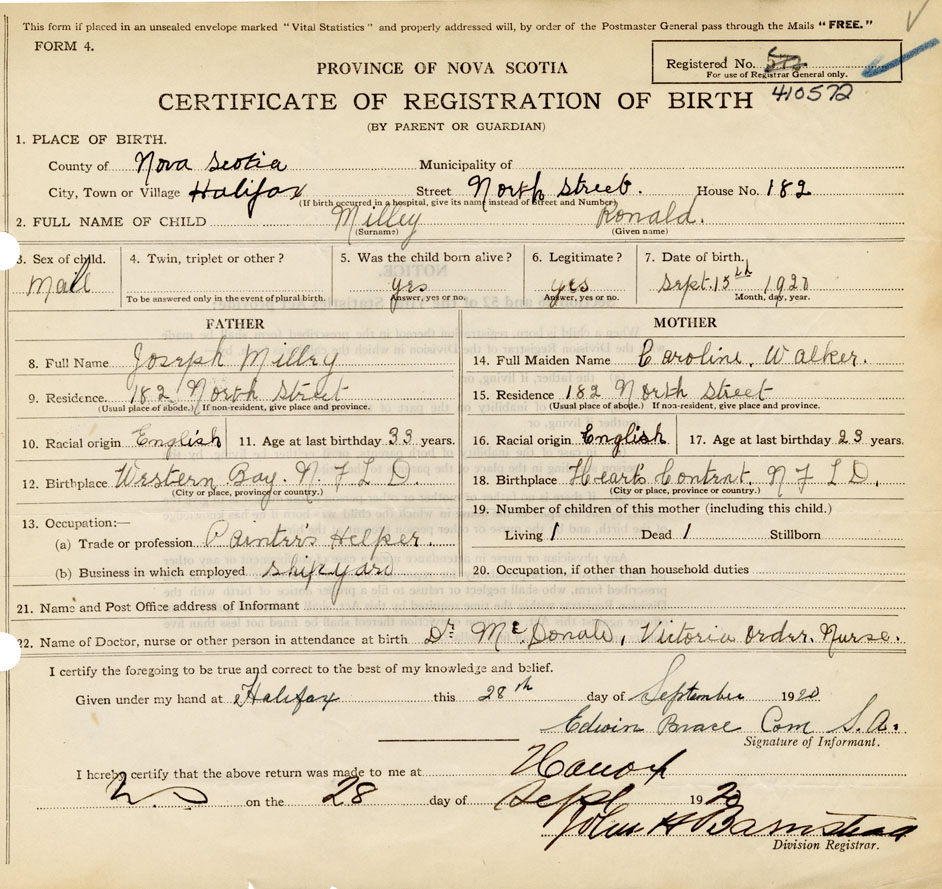 This form if placed in an unsealed envelope marked "Vital Statistics" and properly addressed will, by order of the Postmaster General pass through the Mails "FREE."
FORM 4.
Registered No. 572
For use of Registrar General only.
410572
PROVINCE OF NOVA SCOTIA
CERTIFICATE OF REGISTRATION OF BIRTH
(BY PARENT OR GUARDIAN)
1. PLACE OF BIRTH.
County of Nova Scotia Municipality of
City, Town or Village Halifax Street North Street. House No. 182
(If birth occurred in a hospital, give its name instead of Street and Number)
2. FULL NAME OF CHILD Milley Ronald.
(Surname) (Given name)
3. Sex of child. 4. Twin, triplet or other? 5. Was the child born alive? 6. Legitimate? 7. Date of birth.
Mall yes yes Sept. 15th 1920
To be answered only in the event of plural birth. Answer, yes or no. Answer, yes or no. Month, day, year.
FATHER
8. Full Name Joseph Milley
9. Residence. 182 North Street
(Usual place of abode.) If non-resident, give place and province.
10. Racial origin English 11. Age at last birthday 33 years.
12. Birthplace Western Bay. N. F L D.
(City or place, province or country.)
13. Occupation:—
(a) Trade or profession Painter's Helper.
(b) Business in which employed shipyard
MOTHER
14. Full Maiden Name Caroline Walker.
15. Residence 182 North Street
(Usual place of abode.) If non-resident, give place and province.
16. Racial origin English 17. Age at last birthday 23 years.
18. Birthplace Hearts Contrat. N F L D.
(City or place, province or country.)
19. Number of children of this mother (including this child.)
Living 1 Dead 1 Stillborn
20. Occupation, if other than household duties
21. Name and Post Office address of Informant
22. Name of Doctor, nurse or other person in attendance at birth Dr. McDonald, Victoria Order. Nurse.
I certify the foregoing to be true and correct to the best of my knowledge and belief.
Given under my hand at Halifax this 28th day of September 1920
Edwin Brace Com S.A.
Signature of Informant.
I hereby certify that the above return was made to me at
on the 28 day of Sept 1920
John H Barnstead
Division Registrar.